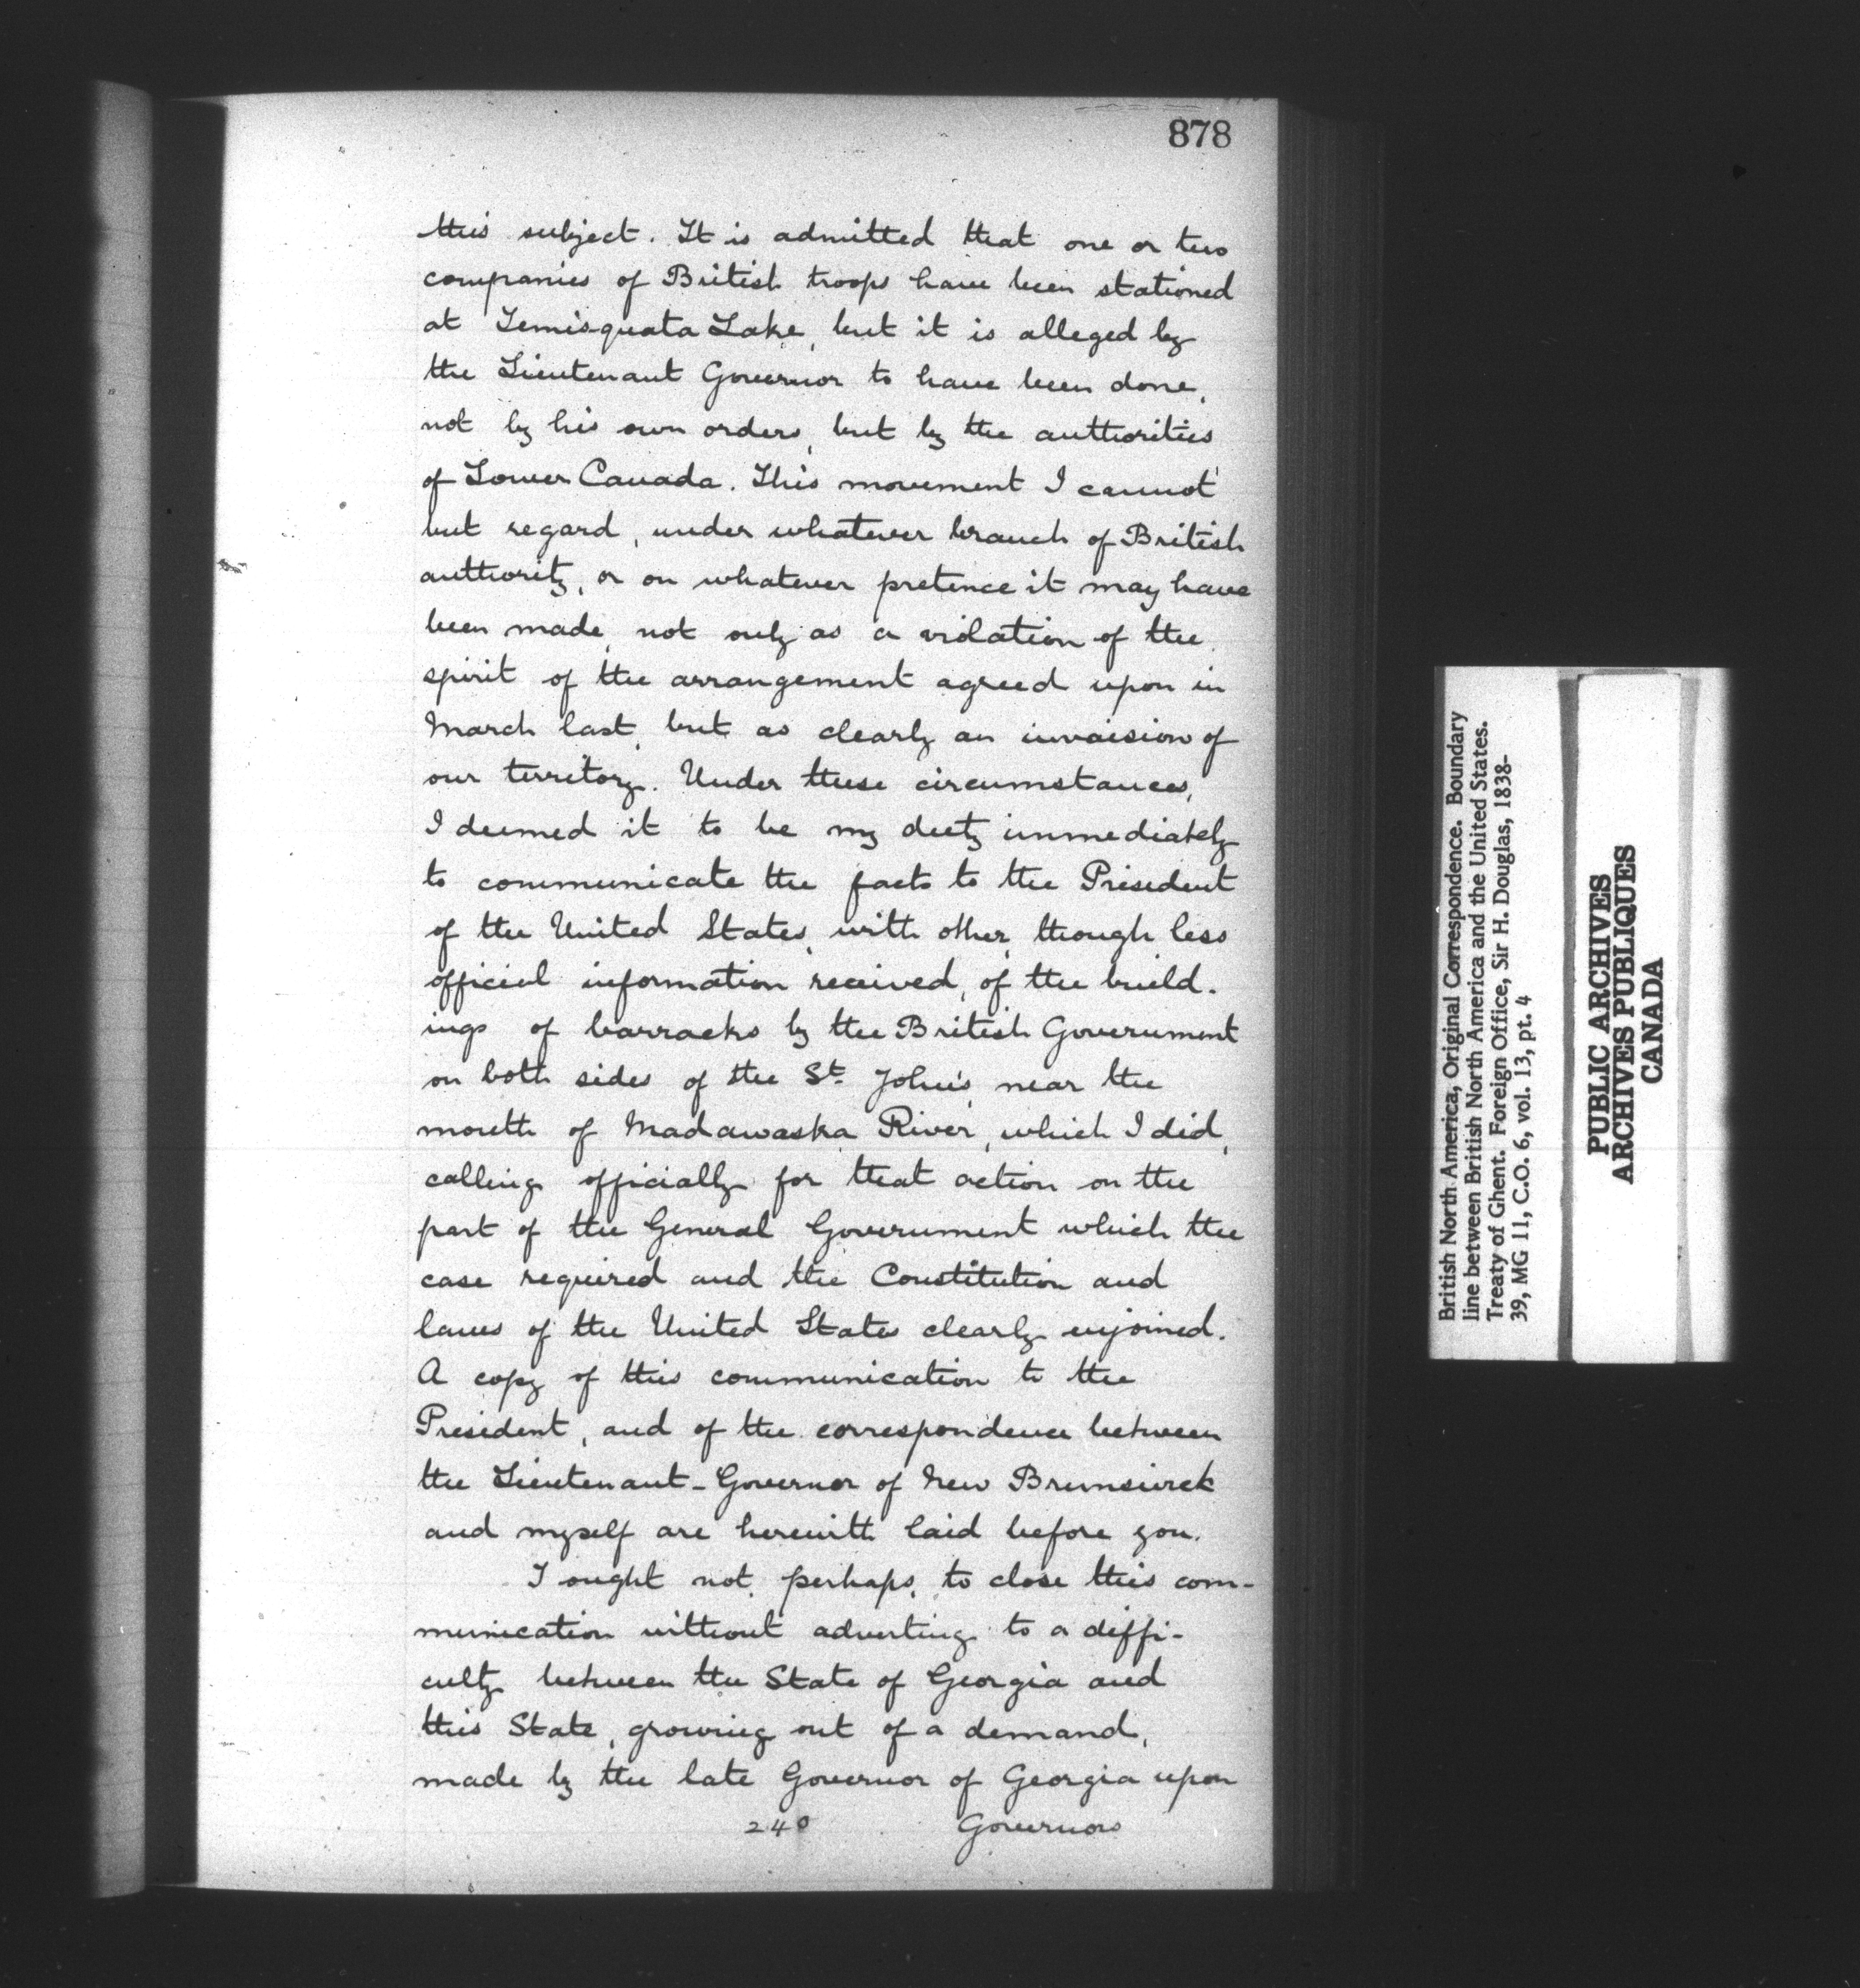 878
this subject. It is admitted that one or two
companies of British troops have been stationed
at Temisquata Lake, but it is alleged by
the Lieutenant Governor to have been done,
not by his own orders, but by the authorities
of Lower Canada. This movement I cannot
but regard, under whatever branch of British
authority, or on whatever pretence it may have
been made, not only as a violation of the
spirit of the arrangement agreed upon in
March last, but as clearly an invaision of
our territory. Under these circumstances,
I deemed it to be my duty immediately
to communicate the facts to the President
of the United States, with other, though less
official information received, of the build-
ings of barracks by the British Government
on both sides of the St. John's, near the
mouth of Madawaska River, which I did,
calling officially for that action on the
part of the General Government which the
case required and the Constitution and
laws of the United States clearly enjoined.
A copy of this communication to the
President, and of the correspondence between
the Lieutenant-Governor of New Brunswick
and myself are herewith laid before you.
I ought not, perhaps, to close this com-
munication without adverting to a diffi-
culty between the State of Georgia and
this State, growing out of a demand,
made by the late Governor of Georgia upon
240 Governors
British North America, Original Correspondence. Boundary
line between British North America and the United States.
Treaty of Ghent. Foreign Office, Sir H. Douglas, 1838-
39, MG 11, C.O. 6, vol. 13, pt. 4
PUBLIC ARCHIVES
ARCHIVES PUBLIQUES
CANADA